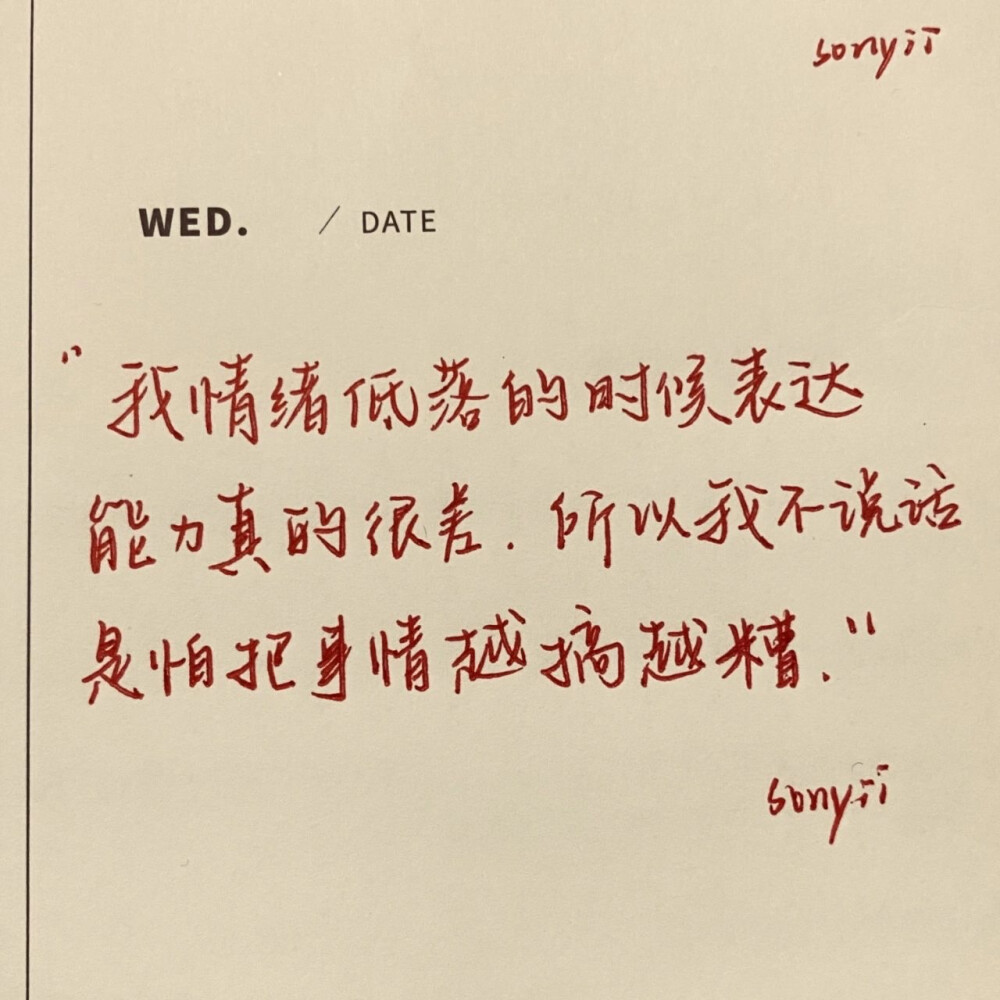 sonyii
WED. / DATE
“我情绪低落的时候表达
能力真的很差.所以我不说话
是怕把事情越搞越糟.”
sonyii